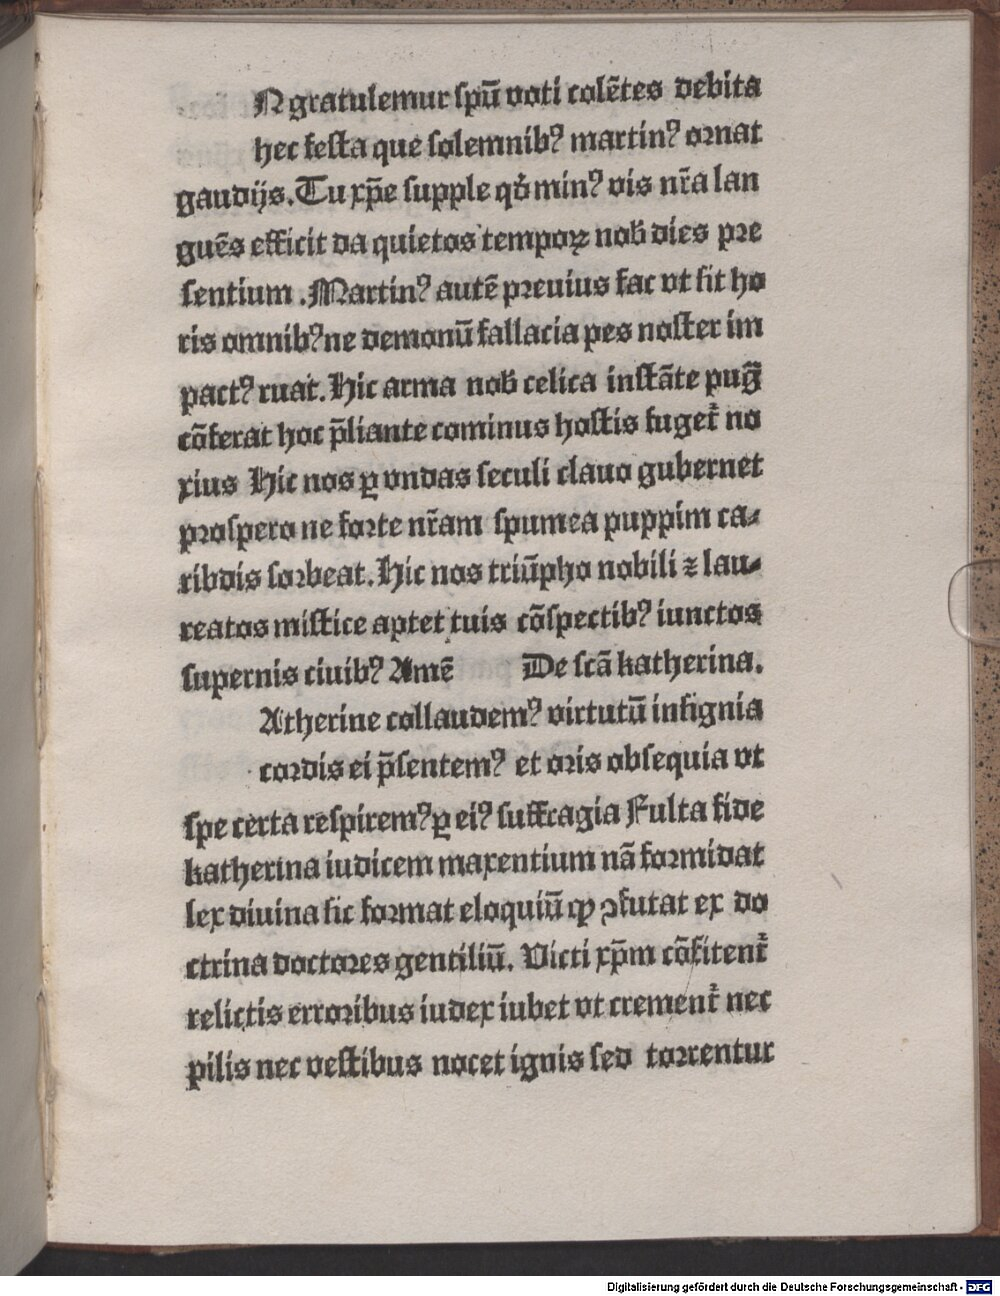 Ngratulemur spū voti colētes debita
hec festa que solemnibꝰ martinꝰ ornat
gaudijs. Tu xp̄e supple qđ minꝰ vis nr̄a lan
guēs efficit da quietos tempoꝝ nob̄ dies pre
sentium. Martinꝰ autē preuius fac vt sit ho
ris omnibꝰ ne demonū fallacia pes noster im
pactꝰ ruat. Hic arma nob̄ celica instāte pug̃
cōferat hoc p̄liante cominus hostis fuget᷑ no
xius Hic nos ꝑ vndas seculi clauo gubernet
prospero ne forte nr̄am spumea puppim ca⸗
ribdis sorbeat. Hic nos triūpho nobili ⁊ lau⸗
reatos mistice aptet tuis cōspectibꝰ iunctos
supernis ciuibꝰ Amē De scā katherina.
Atherine collaudemꝰ virtutū insignia
cordis ei p̄sentemꝰ et oris obsequia vt
spe certa respiremꝰ ꝑ eiꝰ suffragia Fulta fide
katherina iudicem maxentium nā formidat
lex diuina sic format eloquiū ꝙ ꝯfutat ex do
ctrina doctores gentiliū. Victi xp̄m cōfitent᷑
relictis erroribus iudex iubet vt crement᷑ nec
pilis nec vestibus nocet ignis sed torrentur
Digitalisierung gefördert durch die Deutsche Forschungsgemeinschaft - DFG